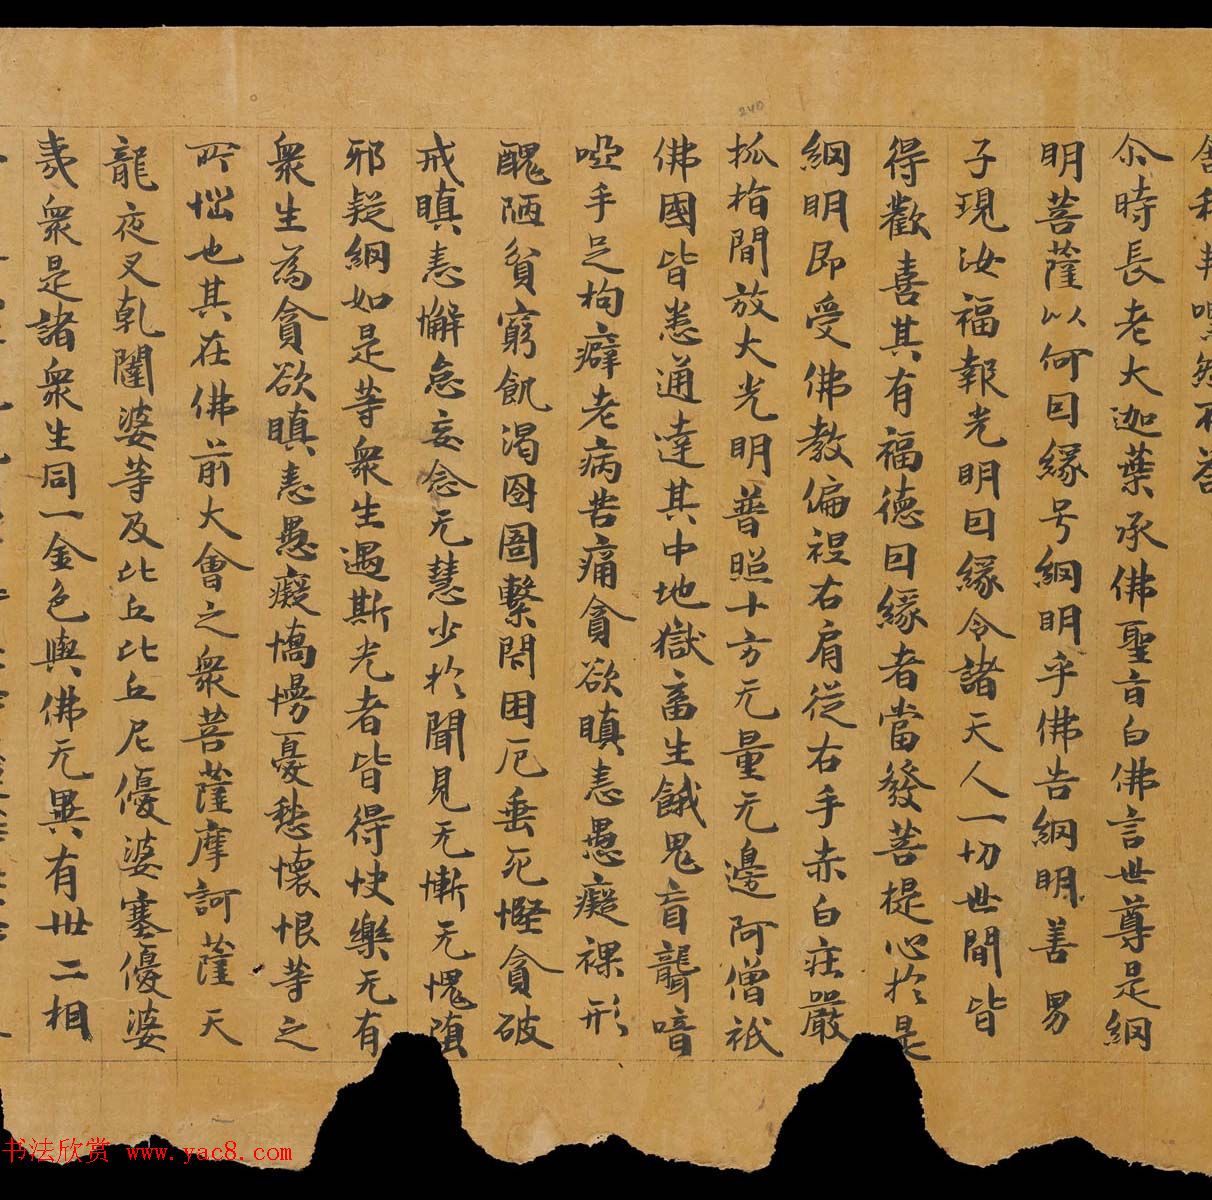 尒時長老大迦葉承佛聖旨白佛言世尊是綱
明菩薩以何因緣号綱明乎佛告綱明善男
子現汝福報光明因緣令諸天人一切世間皆
得歡喜其有福德因緣者當發菩提心於是
綱明即受佛教偏袒右肩從右手赤白莊嚴
抓指間放大光明普照十方无量无邊阿僧祇
佛國皆悉通達其中地獄畜生餓鬼盲聾喑
啞手足拘癖老病苦痛貪欲瞋恚愚癡裸形
醜陋貧窮飢渴囹圄繫閇困厄垂死慳貪破
戒瞋恚懈怠妄念无慧少於聞見无慚无愧墮
邪疑綱如是等衆生遇斯光者皆得快樂无有
衆生為貪欲瞋恚愚癡憍慢憂愁懷恨等之
所惱也其在佛前大會之衆菩薩摩訶薩天
龍夜叉乹闥婆等及比丘比丘尼優婆塞優婆
夷衆是諸衆生同一金色與佛无異有卅二相
240
书法欣赏 www.yac8.com